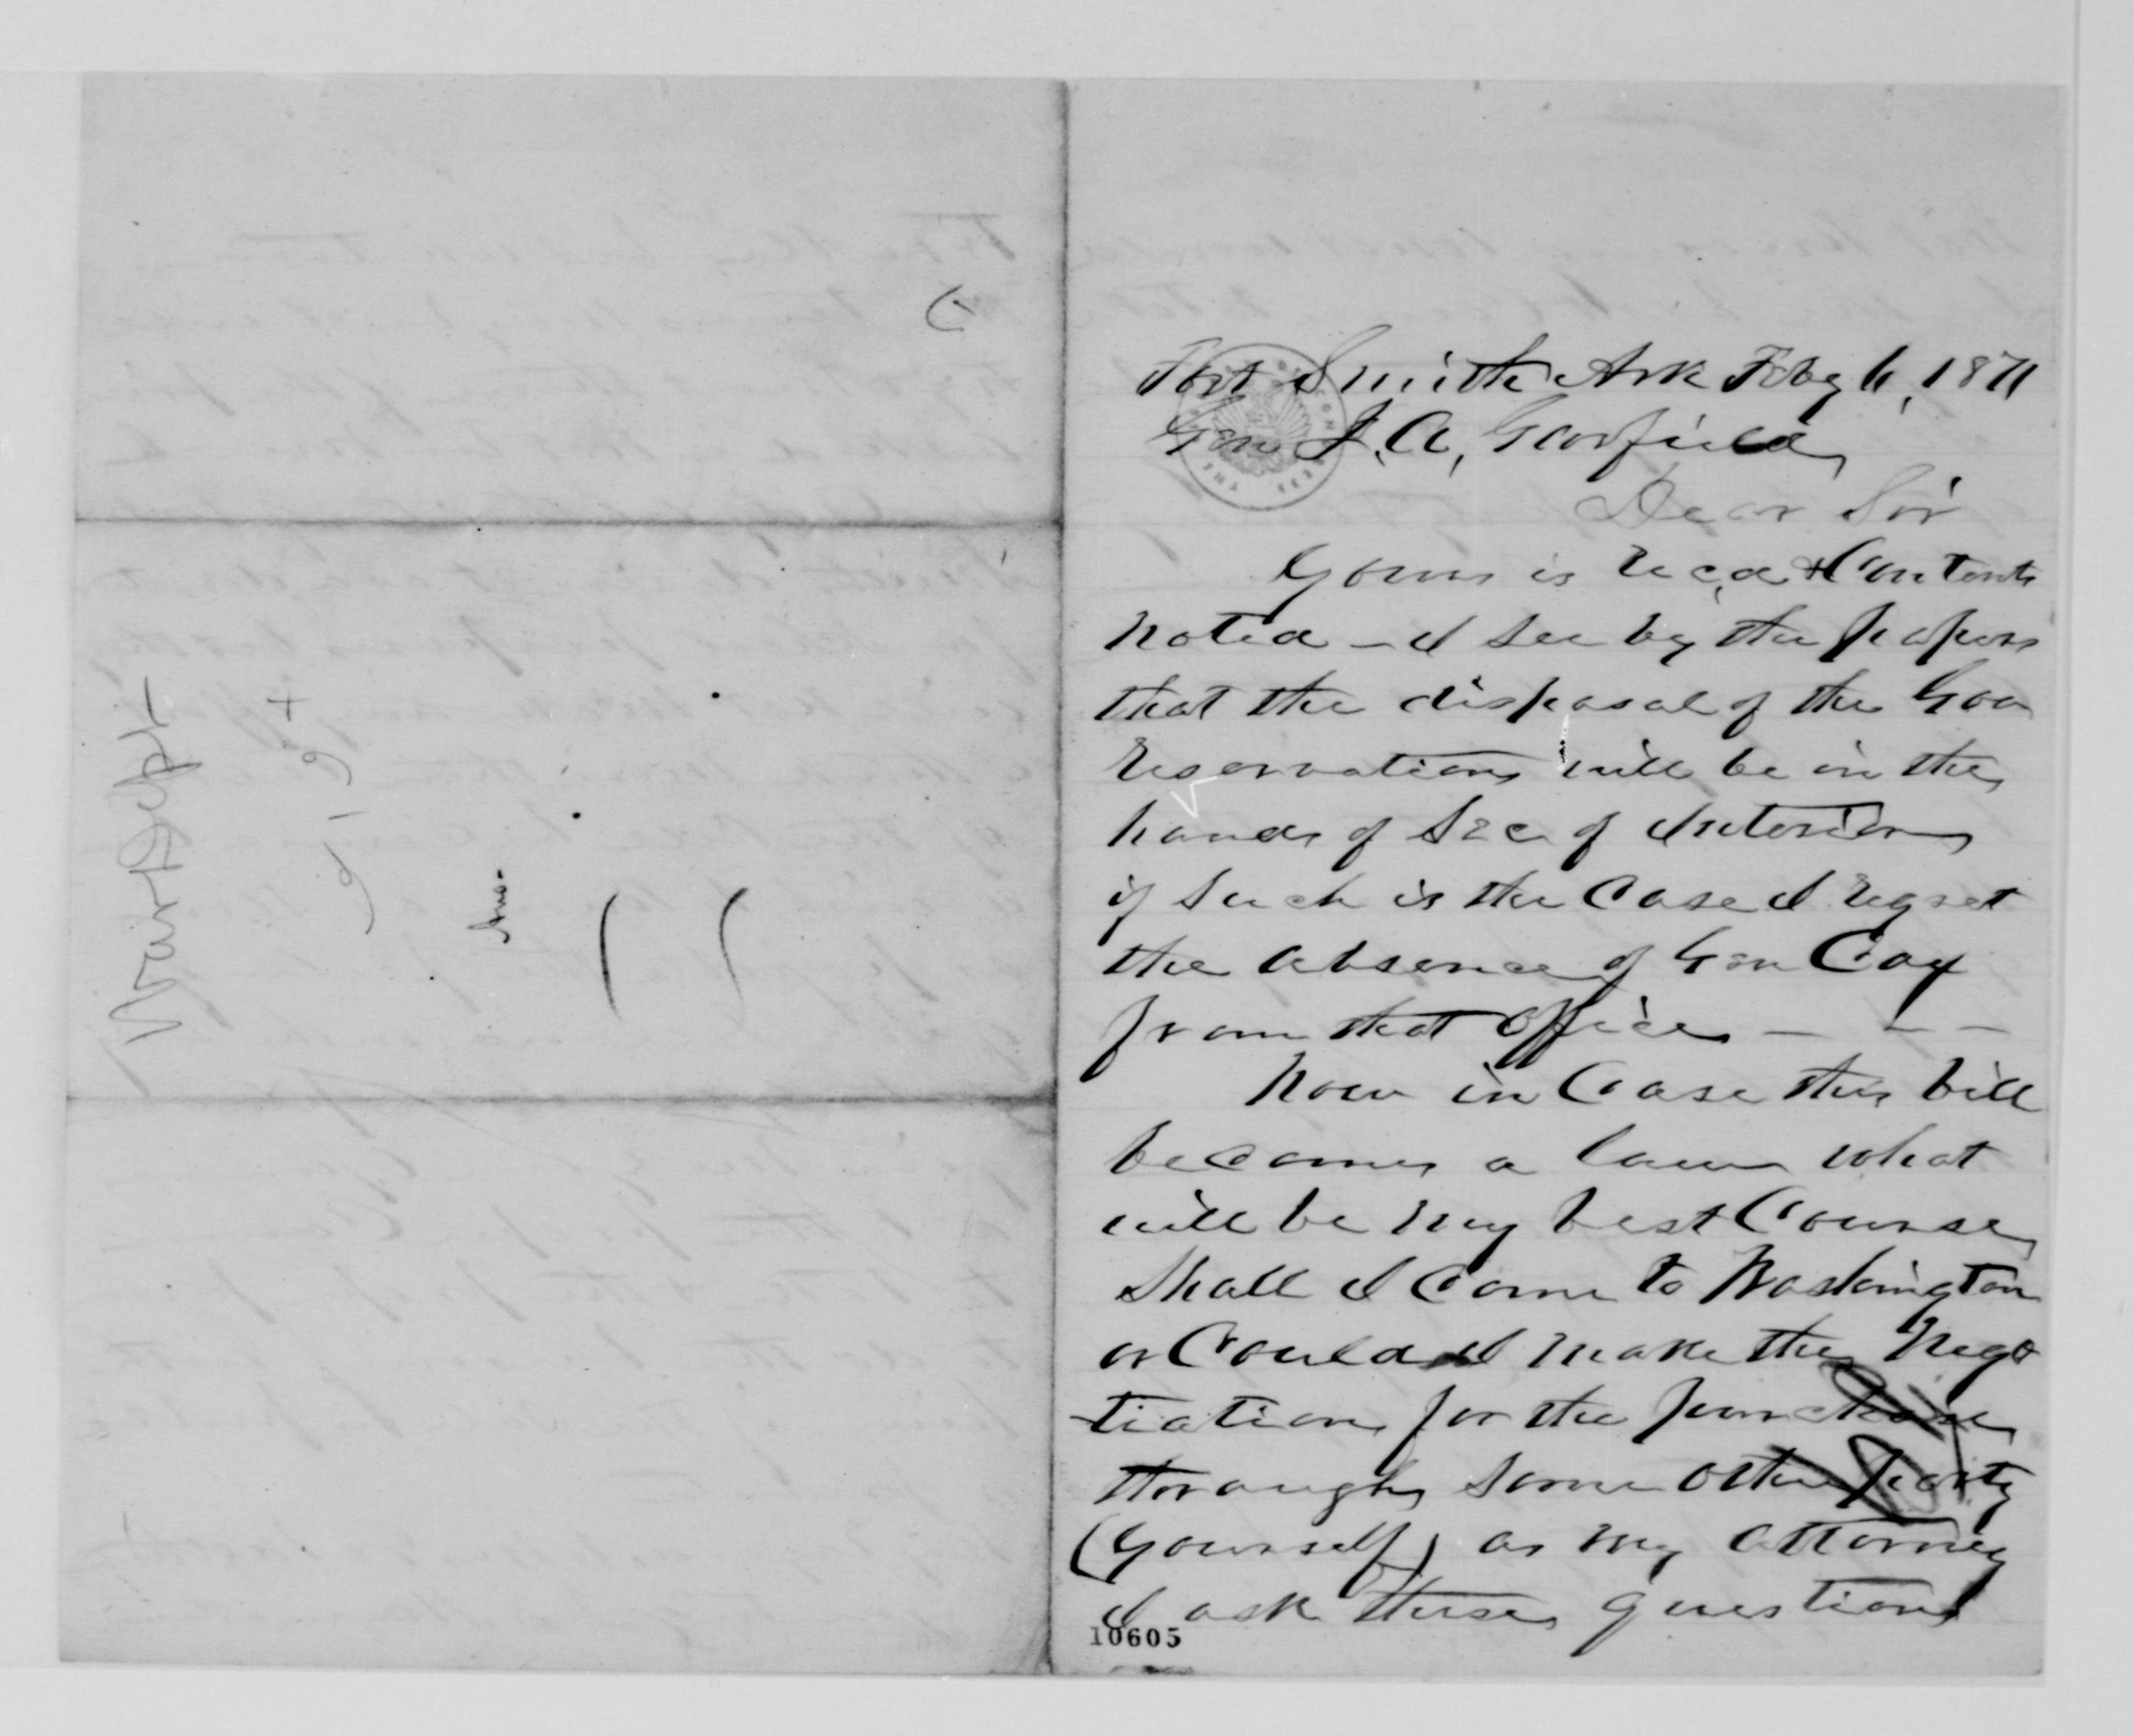 War Dept
Ans-
Fort Smith Ark Feby 6, 1871
Gen J. A, Garfield,
Dear Sir
Yours is recd & Contents
noted – I see by the papers
that the disposal of the Gov
reservations will be in the
hands of Sec of Interior,
if such is the Case I regret
the absence of Gen Cox
from that office – – –
Now in Case this bill
becomes a law what
will be my best Course,
Shall I Come to Washington
or Could I make the Nego
-tiation for the purchase,
through some other party
(yourself) as my attorney
I ask these questions
10605